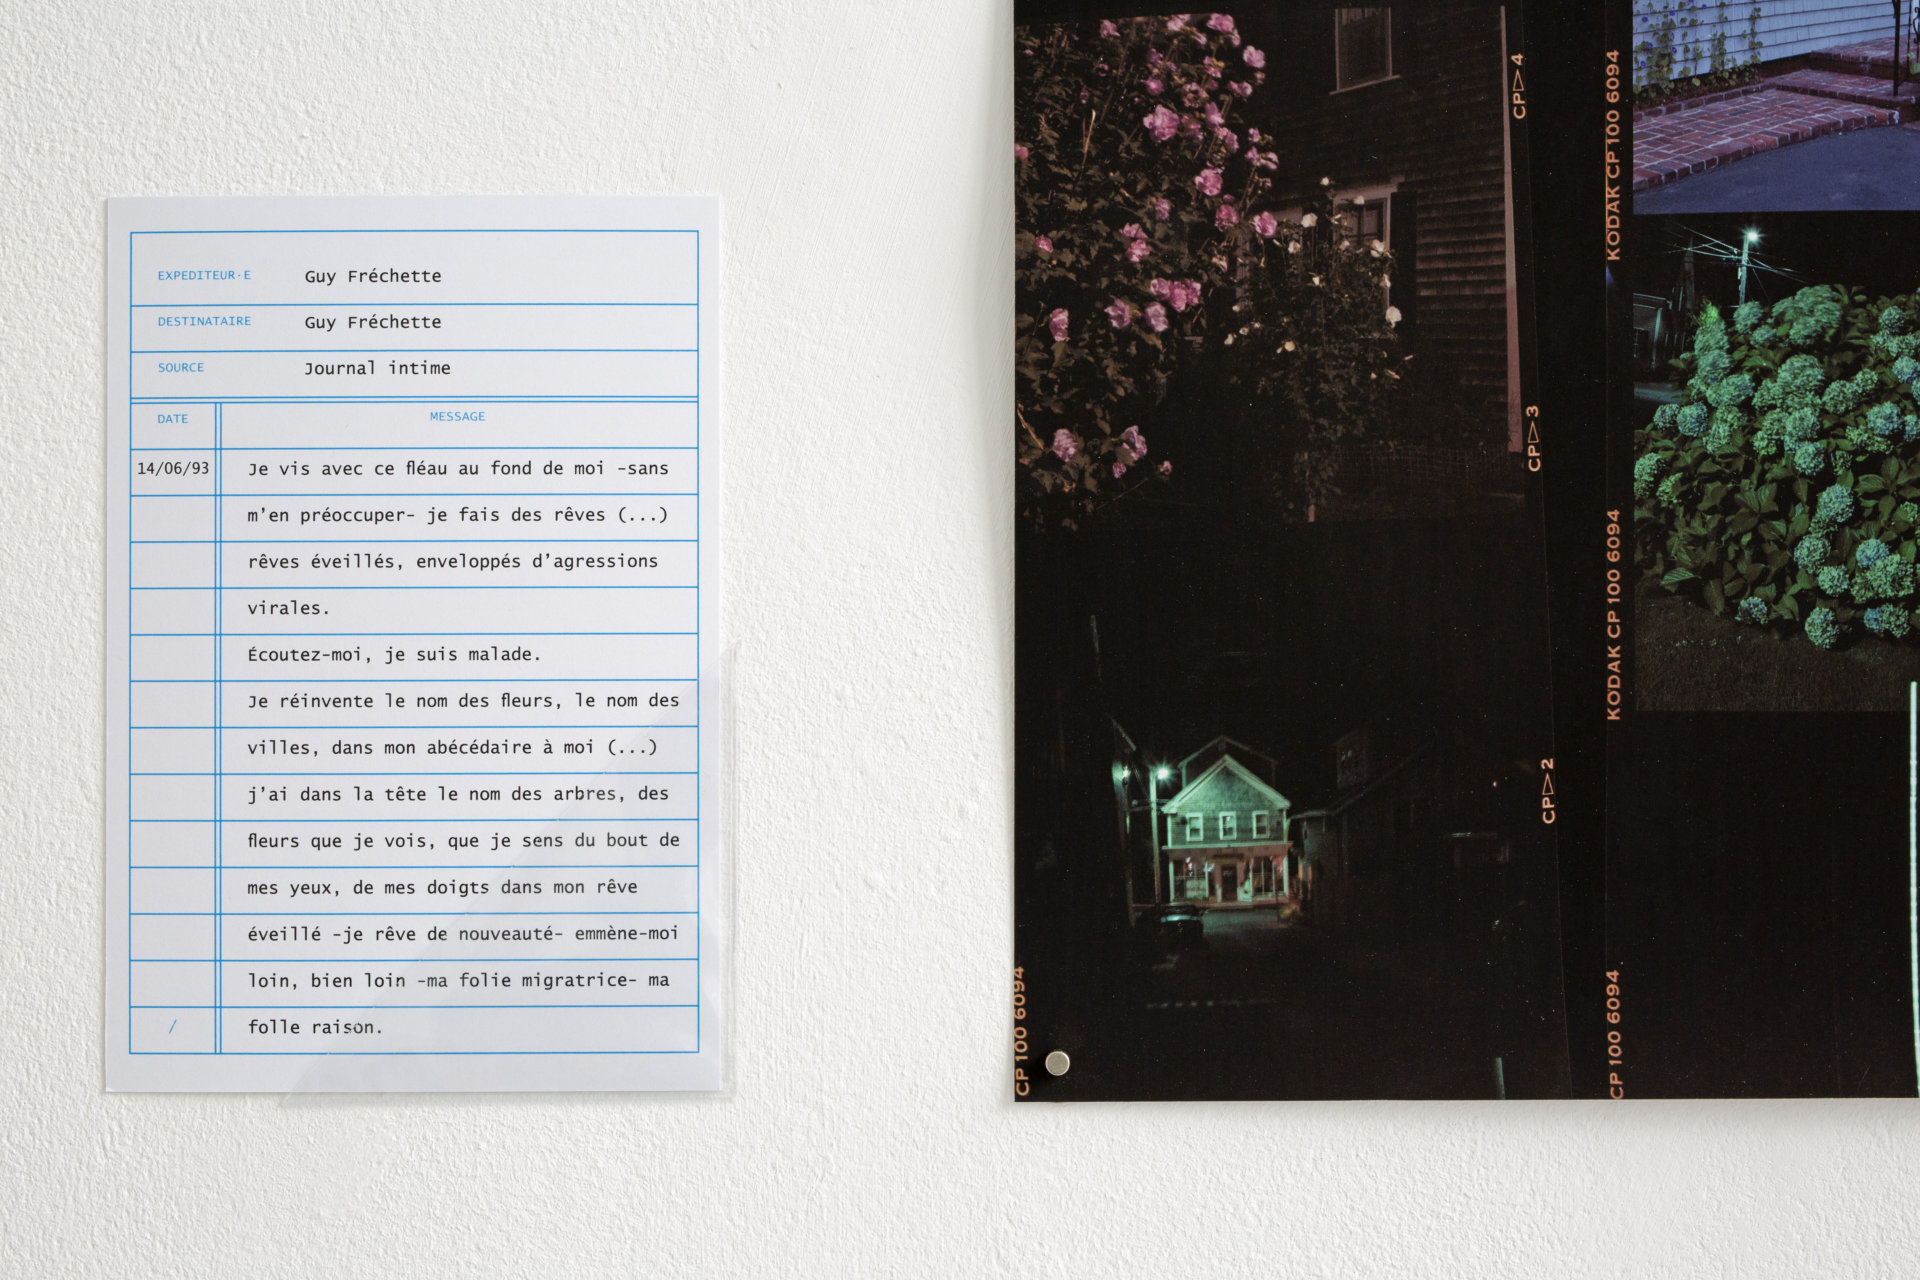 EXPEDITEUR·E Guy Fréchette
DESTINATAIRE Guy Fréchette
SOURCE Journal intime
DATE MESSAGE
14/06/93 Je vis avec ce fléau au fond de moi -sans
m’en préoccuper- je fais des rêves (...)
rêves éveillés, enveloppés d’agressions
virales.
Écoutez-moi, je suis malade.
Je réinvente le nom des fleurs, le nom des
villes, dans mon abécédaire à moi (...)
j’ai dans la tête le nom des arbres, des
fleurs que je vois, que je sens du bout de
mes yeux, de mes doigts dans mon rêve
éveillé -je rêve de nouveauté- emmène-moi
loin, bien loin -ma folie migratrice- ma
/ folle raison.
CP 100 6094
CP▷4
CP▷3
CP▷2
KODAK CP 100 6094
KODAK CP 100 6094
CP 100 6094